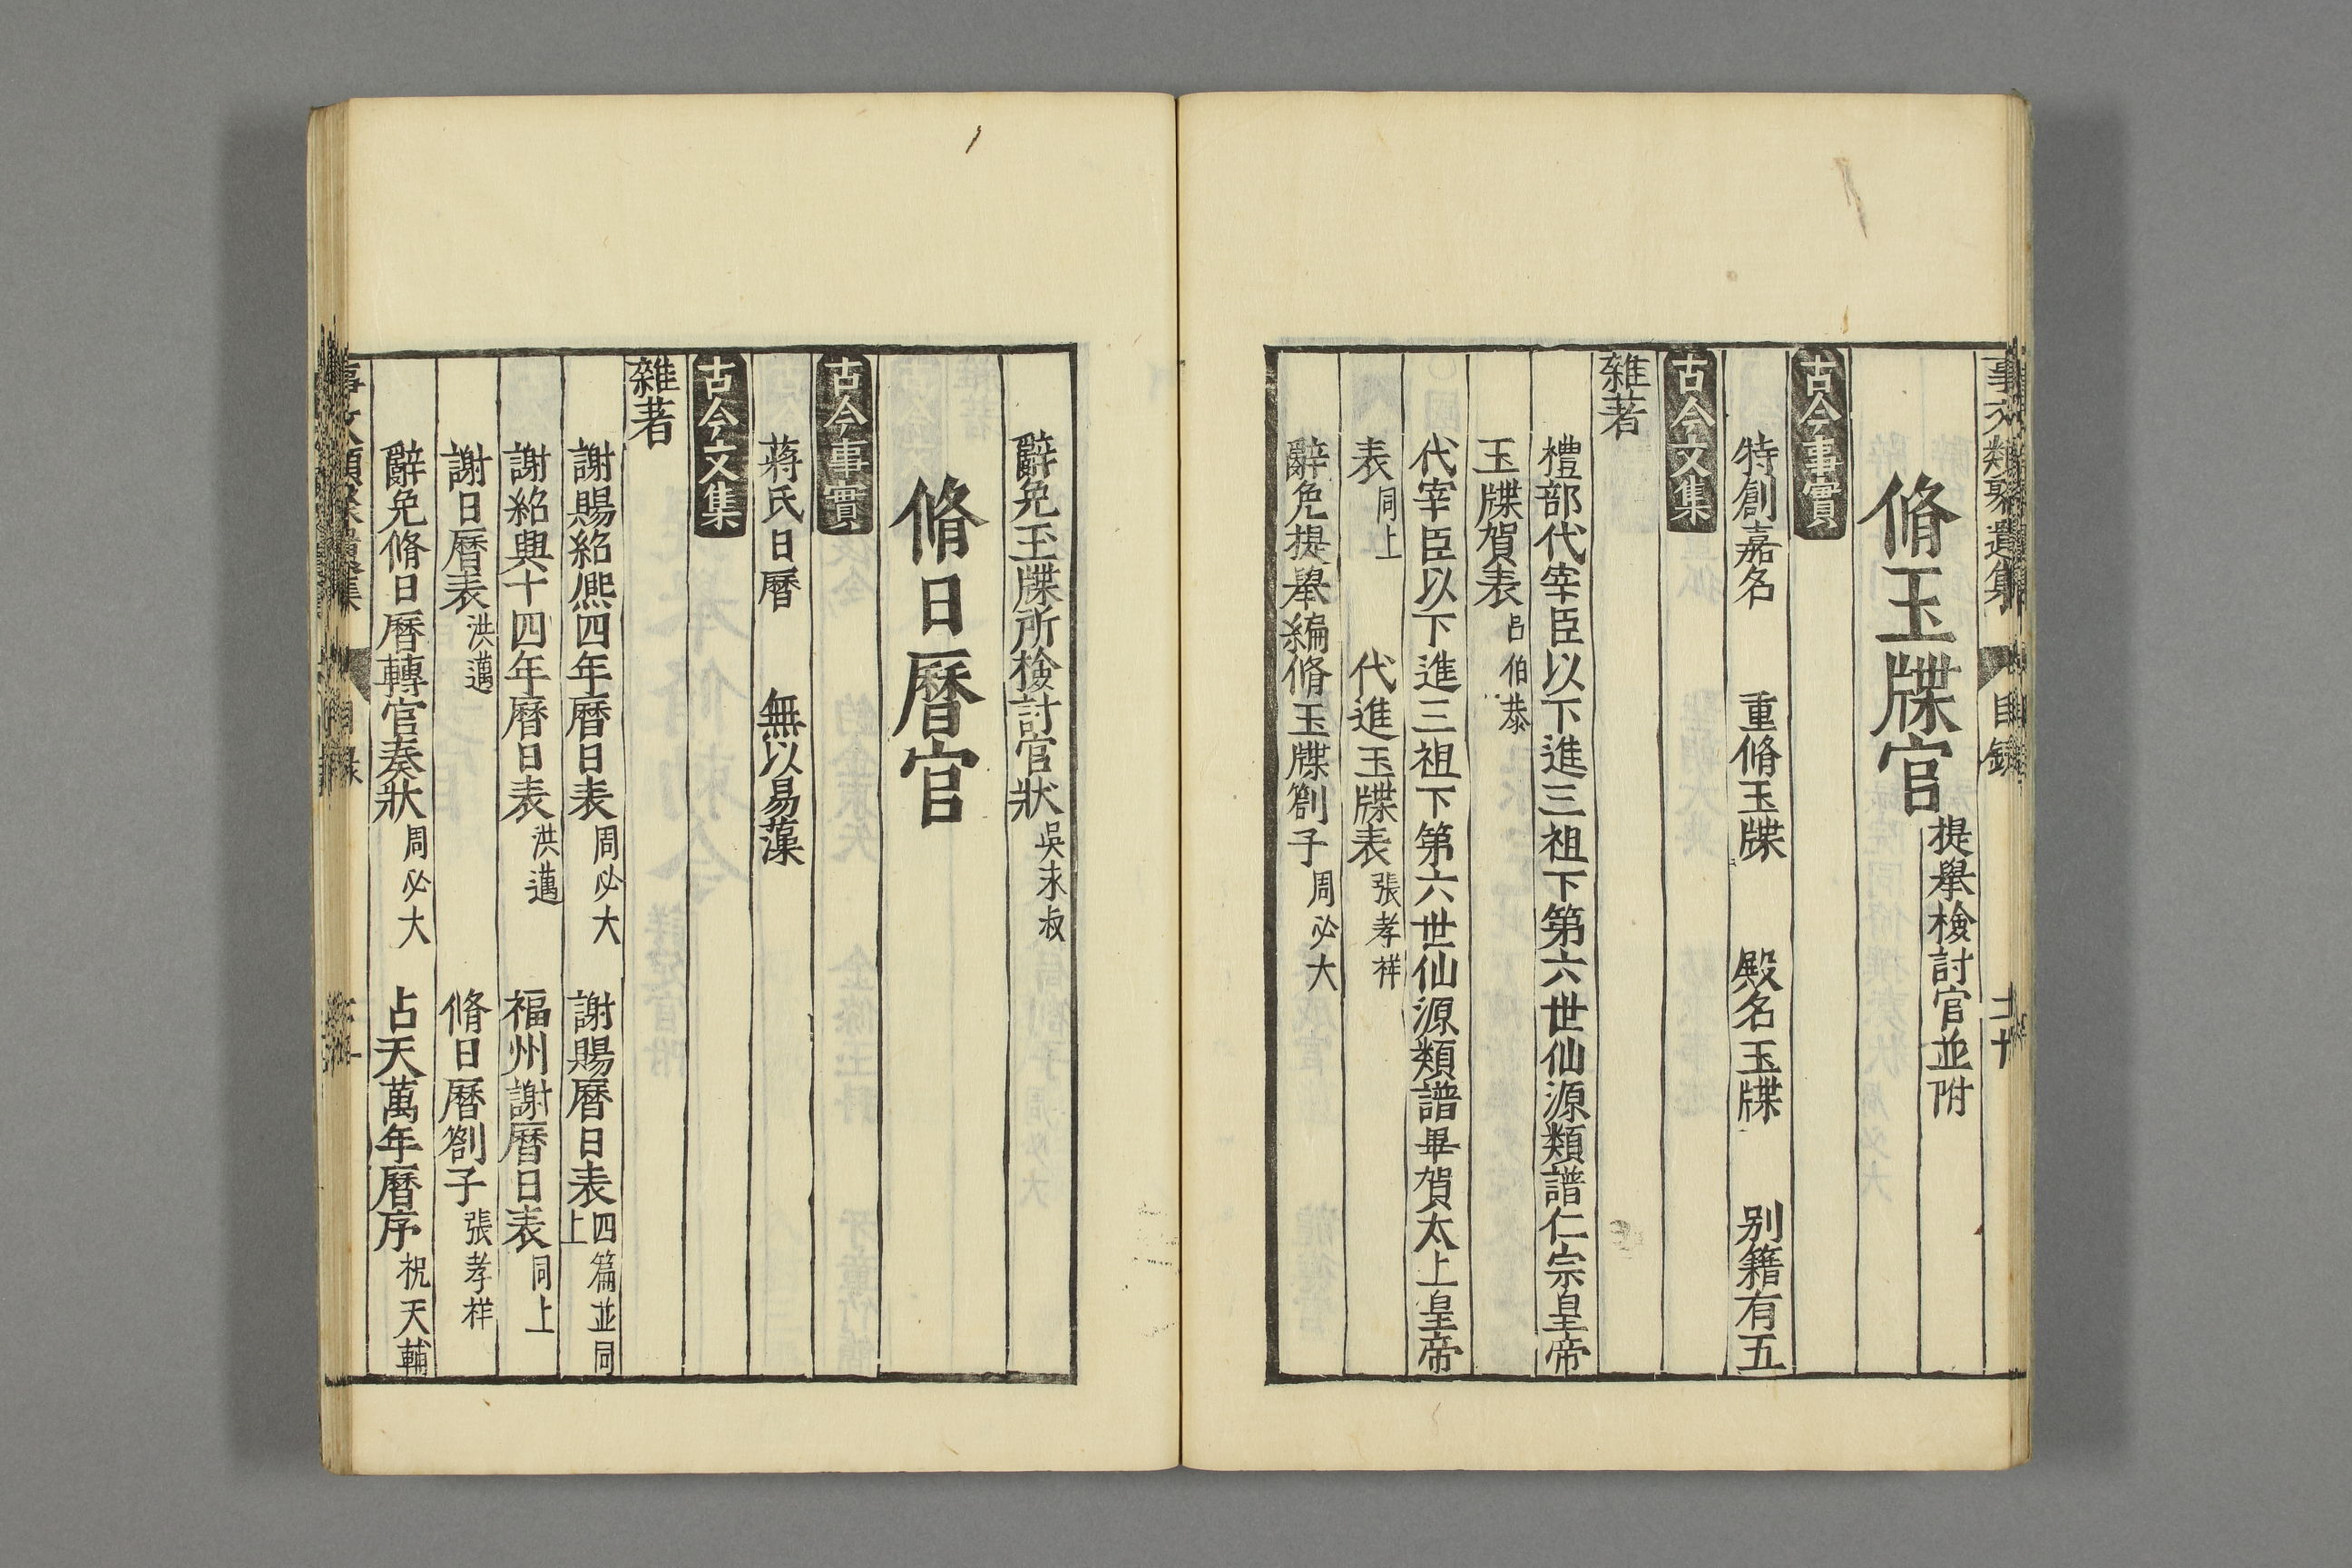 事文類聚遺集 目録
脩玉牒官 提舉檢討官並附
古今事實
特創嘉名 重脩玉牒 殿名玉牒 别籍有五
古今文集
雜著
禮部代宰臣以下進三祖下第六世仙源類譜仁宗皇帝
玉牒賀表 吕伯恭
代宰臣以下進三祖下第六世仙源類譜畢賀太上皇帝
表 同上 代進玉牒表 張孝祥
辭免提舉編脩玉牒劄子 周必大
辭免玉牒所檢討官狀 吳永叔
脩日曆官
古今事實
蔣氏日曆 無以易藻
古今文集
雜著
謝賜紹熈四年曆日表 周必大 謝賜曆日表 四篇並同上
謝紹興十四年曆日表 洪邁 福州謝曆日表 同上
謝日曆表 洪邁 脩日曆劄子 張孝祥
辭免脩日曆轉官奏狀 周必大 占天萬年曆序 祝天輔